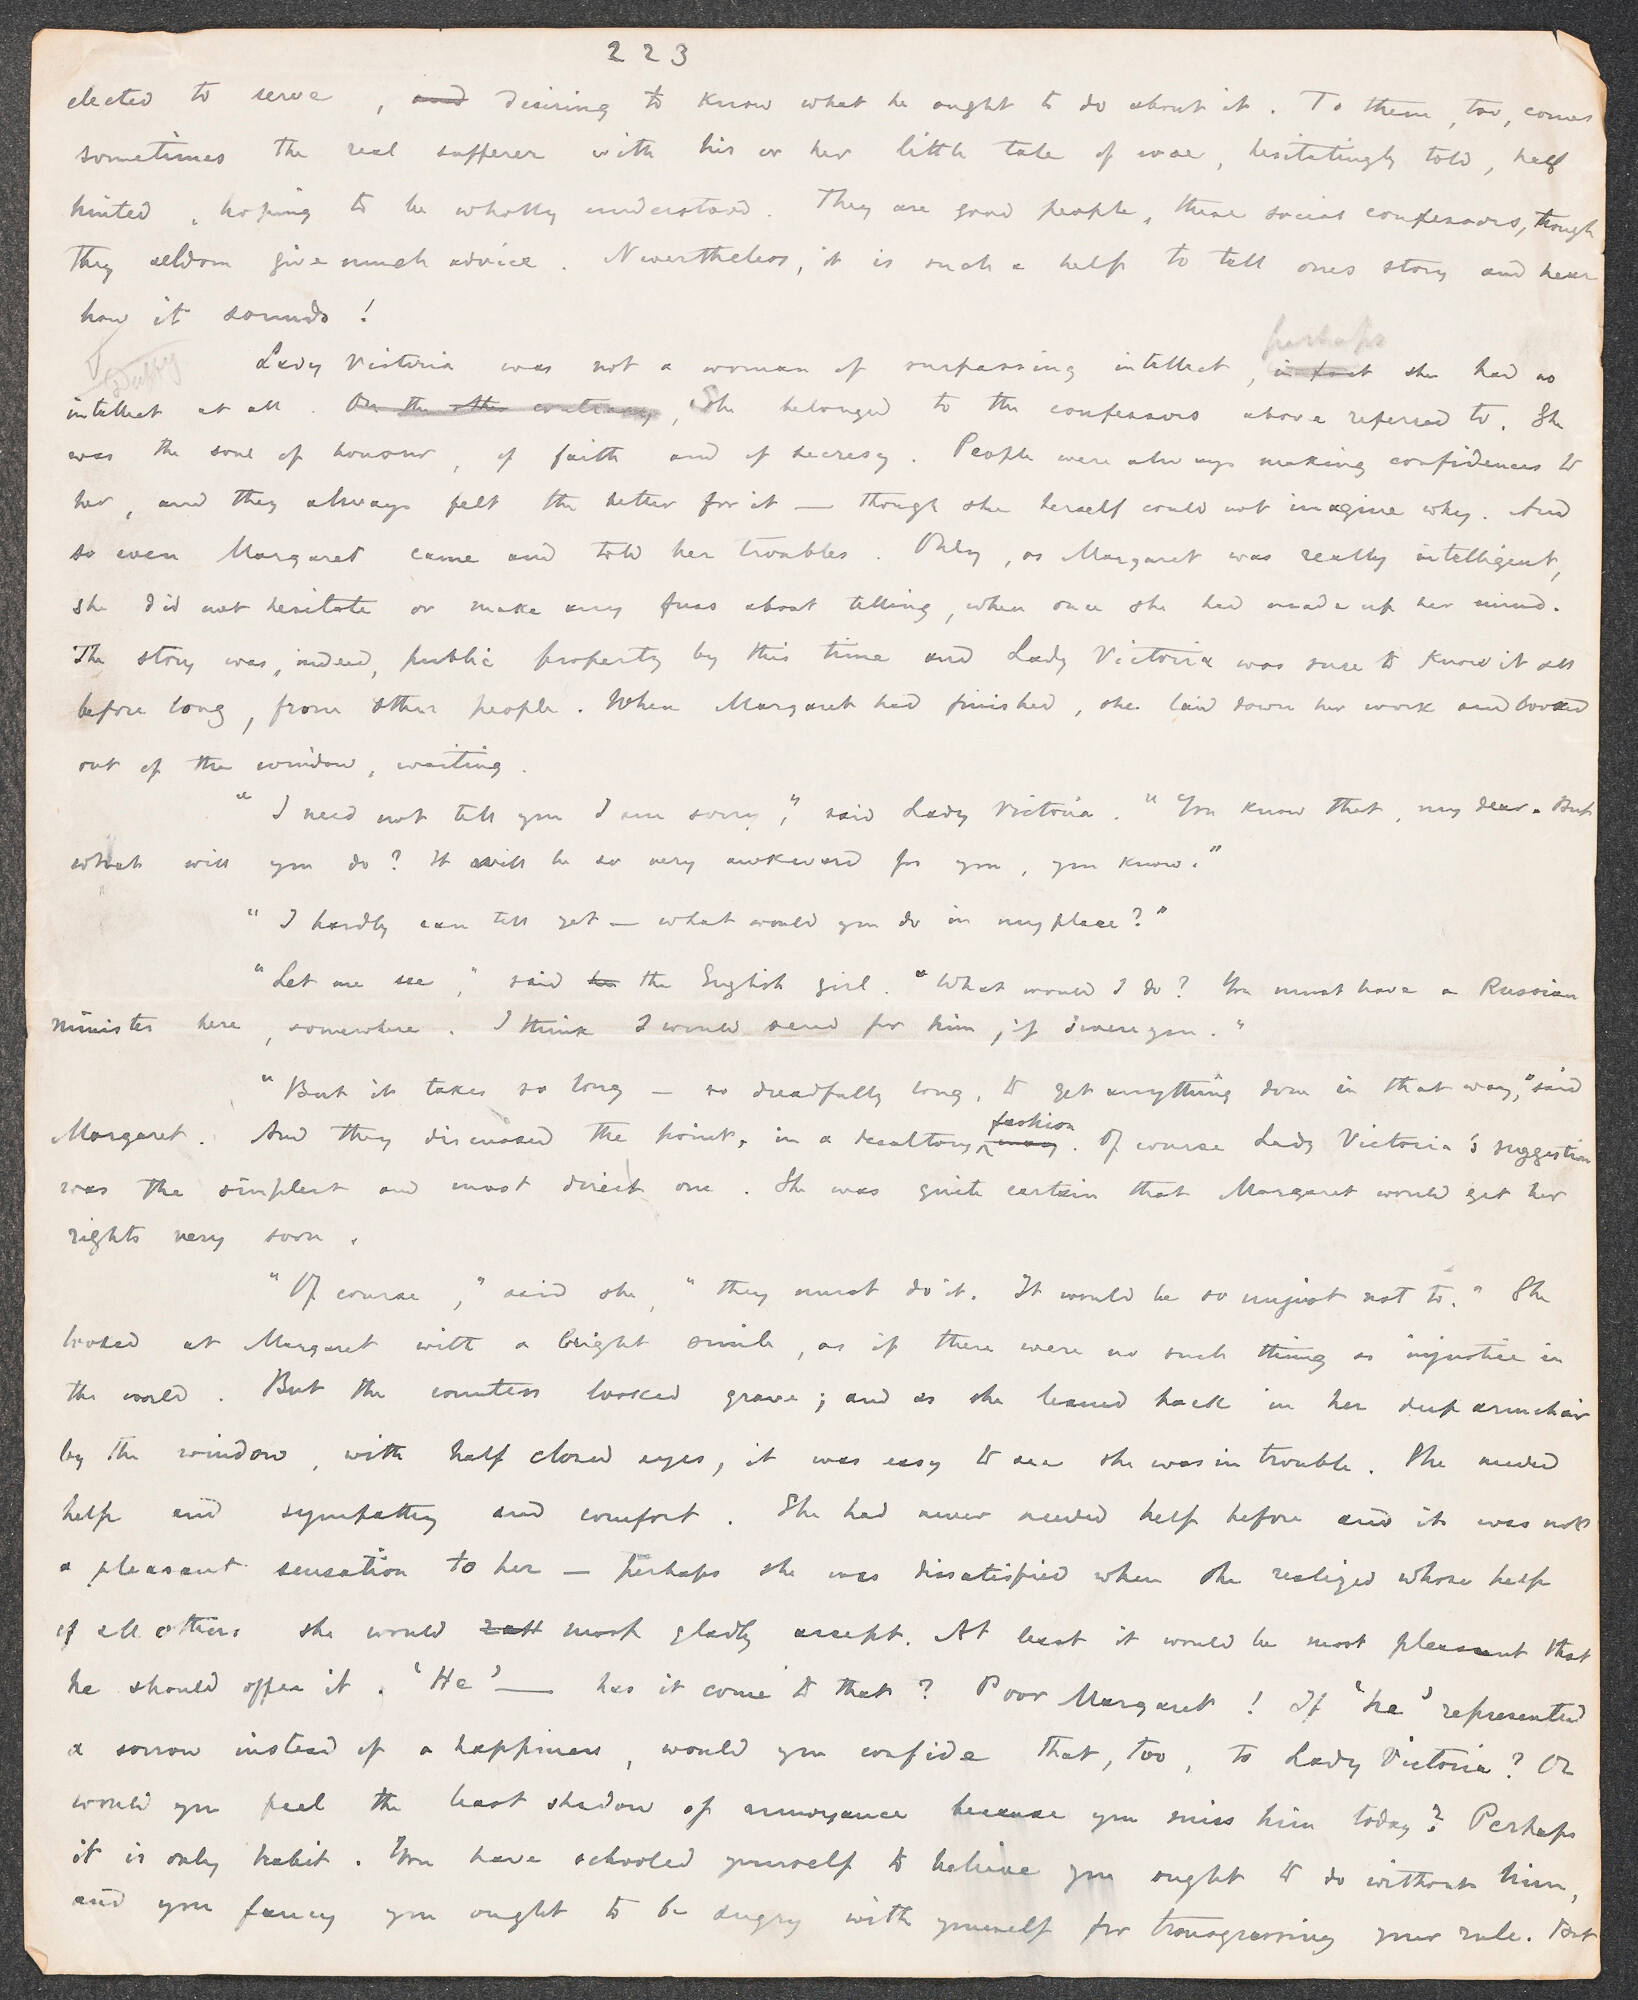 223
elected to serve, and desiring to know what he ought to do about it. To them, too, comes
sometimes the real sufferer with his or her little tale of woe, hesitatingly told, half
hinted, hoping to be wholly understood. They are good people, these social confessors, though
they seldom give much advice. Nevertheless, it is such a help to tell ones story and hear
how it sounds!
perhaps
Lady Victoria was not a woman of surpassing intellect, in fact she had no
intellect at all. On the other contrary, She belonged to the confessors above referred to. She
was the soul of honour, of faith and of secresy. People were always making confidences to
her, and they always felt the better for it — though she herself could not imagine why. And
so even Margaret came and told her troubles. Only, as Margaret was really intelligent,
she did not hesitate or make any fuss about telling, when once she had made up her mind.
The story was, indeed, public property by this time and Lady Victoria was sure to know it all
before long, from other people. When Margaret had finished, she laid down her work and looked
out of the window, waiting.
"I need not tell you I am sorry," said Lady Victoria. "You know that, my dear. But
what will you do? It will be so very awkward for you, you know."
"I hardly can tell yet — what would you do in my place?"
"Let me see," said he the English girl. "What would I do? You must have a Russian
minister here, somewhere. I think I would send for him, if I were you."
"But it takes so long — so dreadfully long, to get anything done in that way," said
fashion
Margaret. And they discussed the point, in a desultory way. Of course Lady Victoria's suggestion
was the simplest and most direct one. She was quite certain that Margaret would get her
rights very soon.
"Of course," said she, "they must do it. It would be so unjust not to." She
looked at Margaret with a bright smile, as if there were no such thing as injustice in
the world. But the countess looked grave; and as she leaned back in her deep armchair
by the window, with half closed eyes, it was easy to see she was in trouble. She needed
help and sympathy and comfort. She had never needed help before and it was not
a pleasant sensation to her — perhaps she was dissatisfied when she realized whose help
of all others she would most gladly accept. At least it would be most pleasant that
he should offer it. 'He' — has it come to that? Poor Margaret! If 'he' represented
a sorrow instead of a happiness, would you confide that, too, to Lady Victoria? Or
would you feel the least shadow of annoyance because you miss him today? Perhaps
it is only habit. You have schooled yourself to believe you ought to do without him,
and you fancy you ought to be angry with yourself for transgressing your rule. But